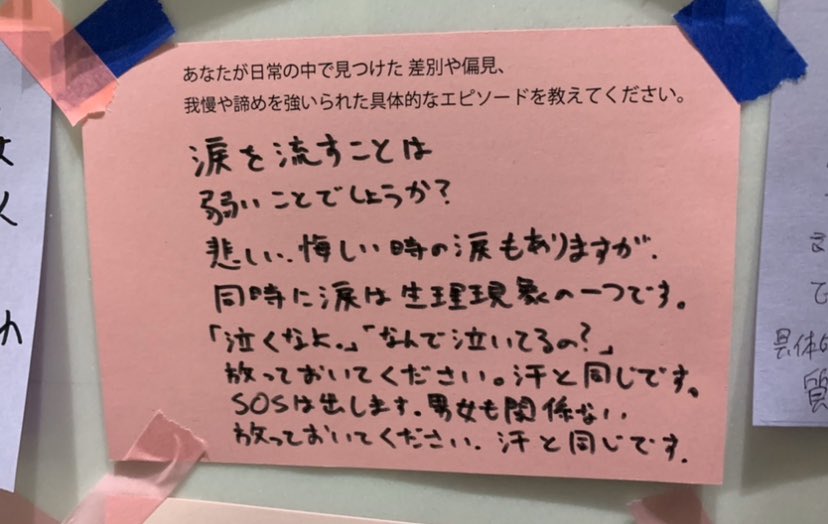 あなたが日常の中で見つけた 差別や偏見、
我慢や諦めを強いられた具体的なエピソードを教えてください。
涙を流すことは
弱いことでしょうか?
悲しい、悔しい時の涙もありますが、
同時に涙は生理現象の一つです。
「泣くなよ。」「なんで泣いてるの?」
放っておいてください。汗と同じです。
SOSは出します。男女も関係ない
放っておいてください。汗と同じです。
具体的
質